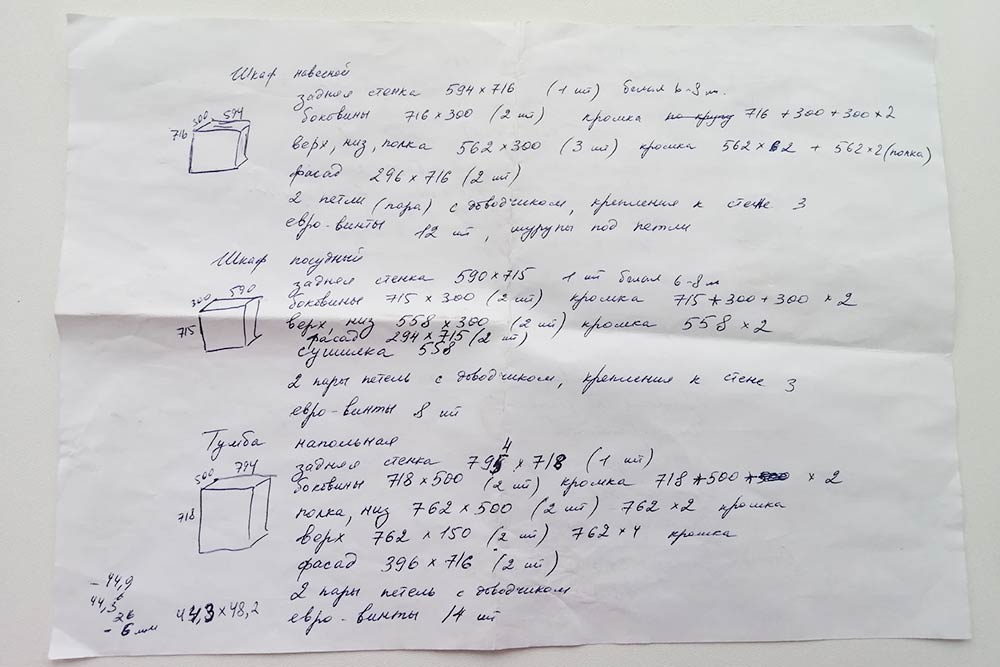 Шкаф навесной
задняя стенка 594×716 (1 шт) белая 6-8 м.
300 594
716
боковины 716×300 (2 шт) кромка по кругу 716 + 300 + 300 × 2
верх, низ, полка 562×300 (3 шт) кромка 562×2 + 562×2 (полка)
фасад 296×716 (2 шт)
2 петли (пара) с доводчиком, крепления к стене 3
евро-винты 12 шт, шурупы под петли
Шкаф посудный
задняя стенка 590×715 1 шт белая 6-8 м
300 590
715
боковины 715 × 300 (2 шт) кромка 715 + 300 + 300 × 2
верх, низ 558 × 300 (2 шт) кромка 558 × 2
фасад 294×715 (2 шт)
сушилка 558
2 пары петель с доводчиком, крепления к стене 3
евро-винты 8 шт
Тумба напольная
задняя стенка 794 × 718 (1 шт)
500 794
718
боковины 718 × 500 (2 шт) кромка 718 + 500 × 2
полка, низ 762 × 500 (2 шт) 762 × 2 кромка
верх 762 × 150 (2 шт) 762 × 4 кромка
фасад 396 × 716 (2 шт)
2 пары петель с доводчиком
евро-винты 14 шт
- 44,9
44,3
26
- 6 мм
44,3 × 48,2